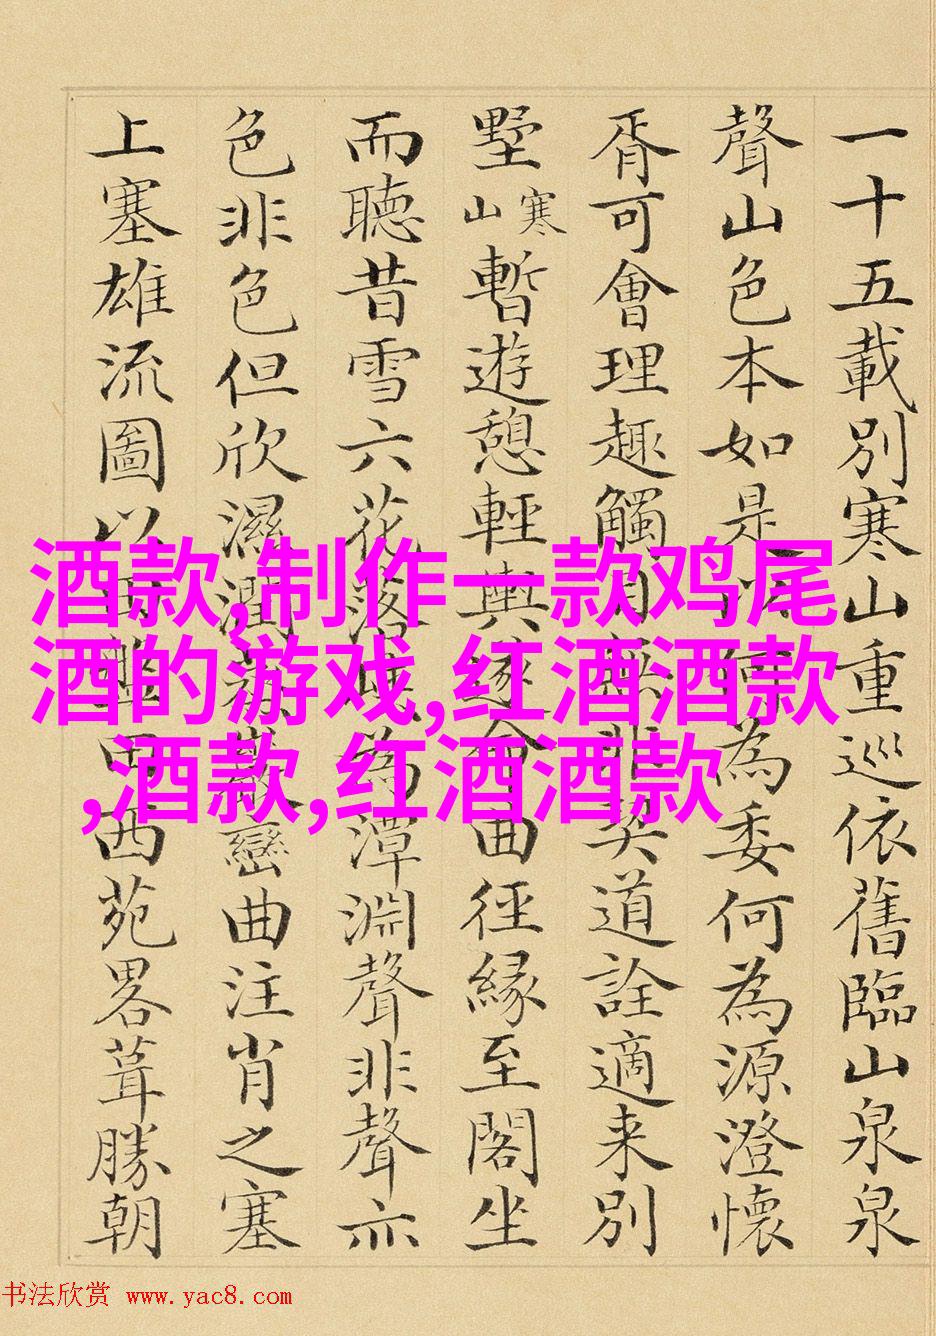 一十五載別寒山重巡依舊臨山泉泉
聲山色本如是何為委何為源澄懷
胥可會理趣觸目無非契道詮適来別
墅寒山暫遊憩輕輿遂命曲徑緣至閣坐
而聽昔雪六花落為潭淵聲非聲亦
色非色但欣濕潤巒曲注肖之塞
上塞雄流圖以西苑畧葺勝朝
酒款,制作一款鸡尾
酒的游戏,红酒酒款
,酒款,红酒酒款
书法欣赏 www.yac8.com